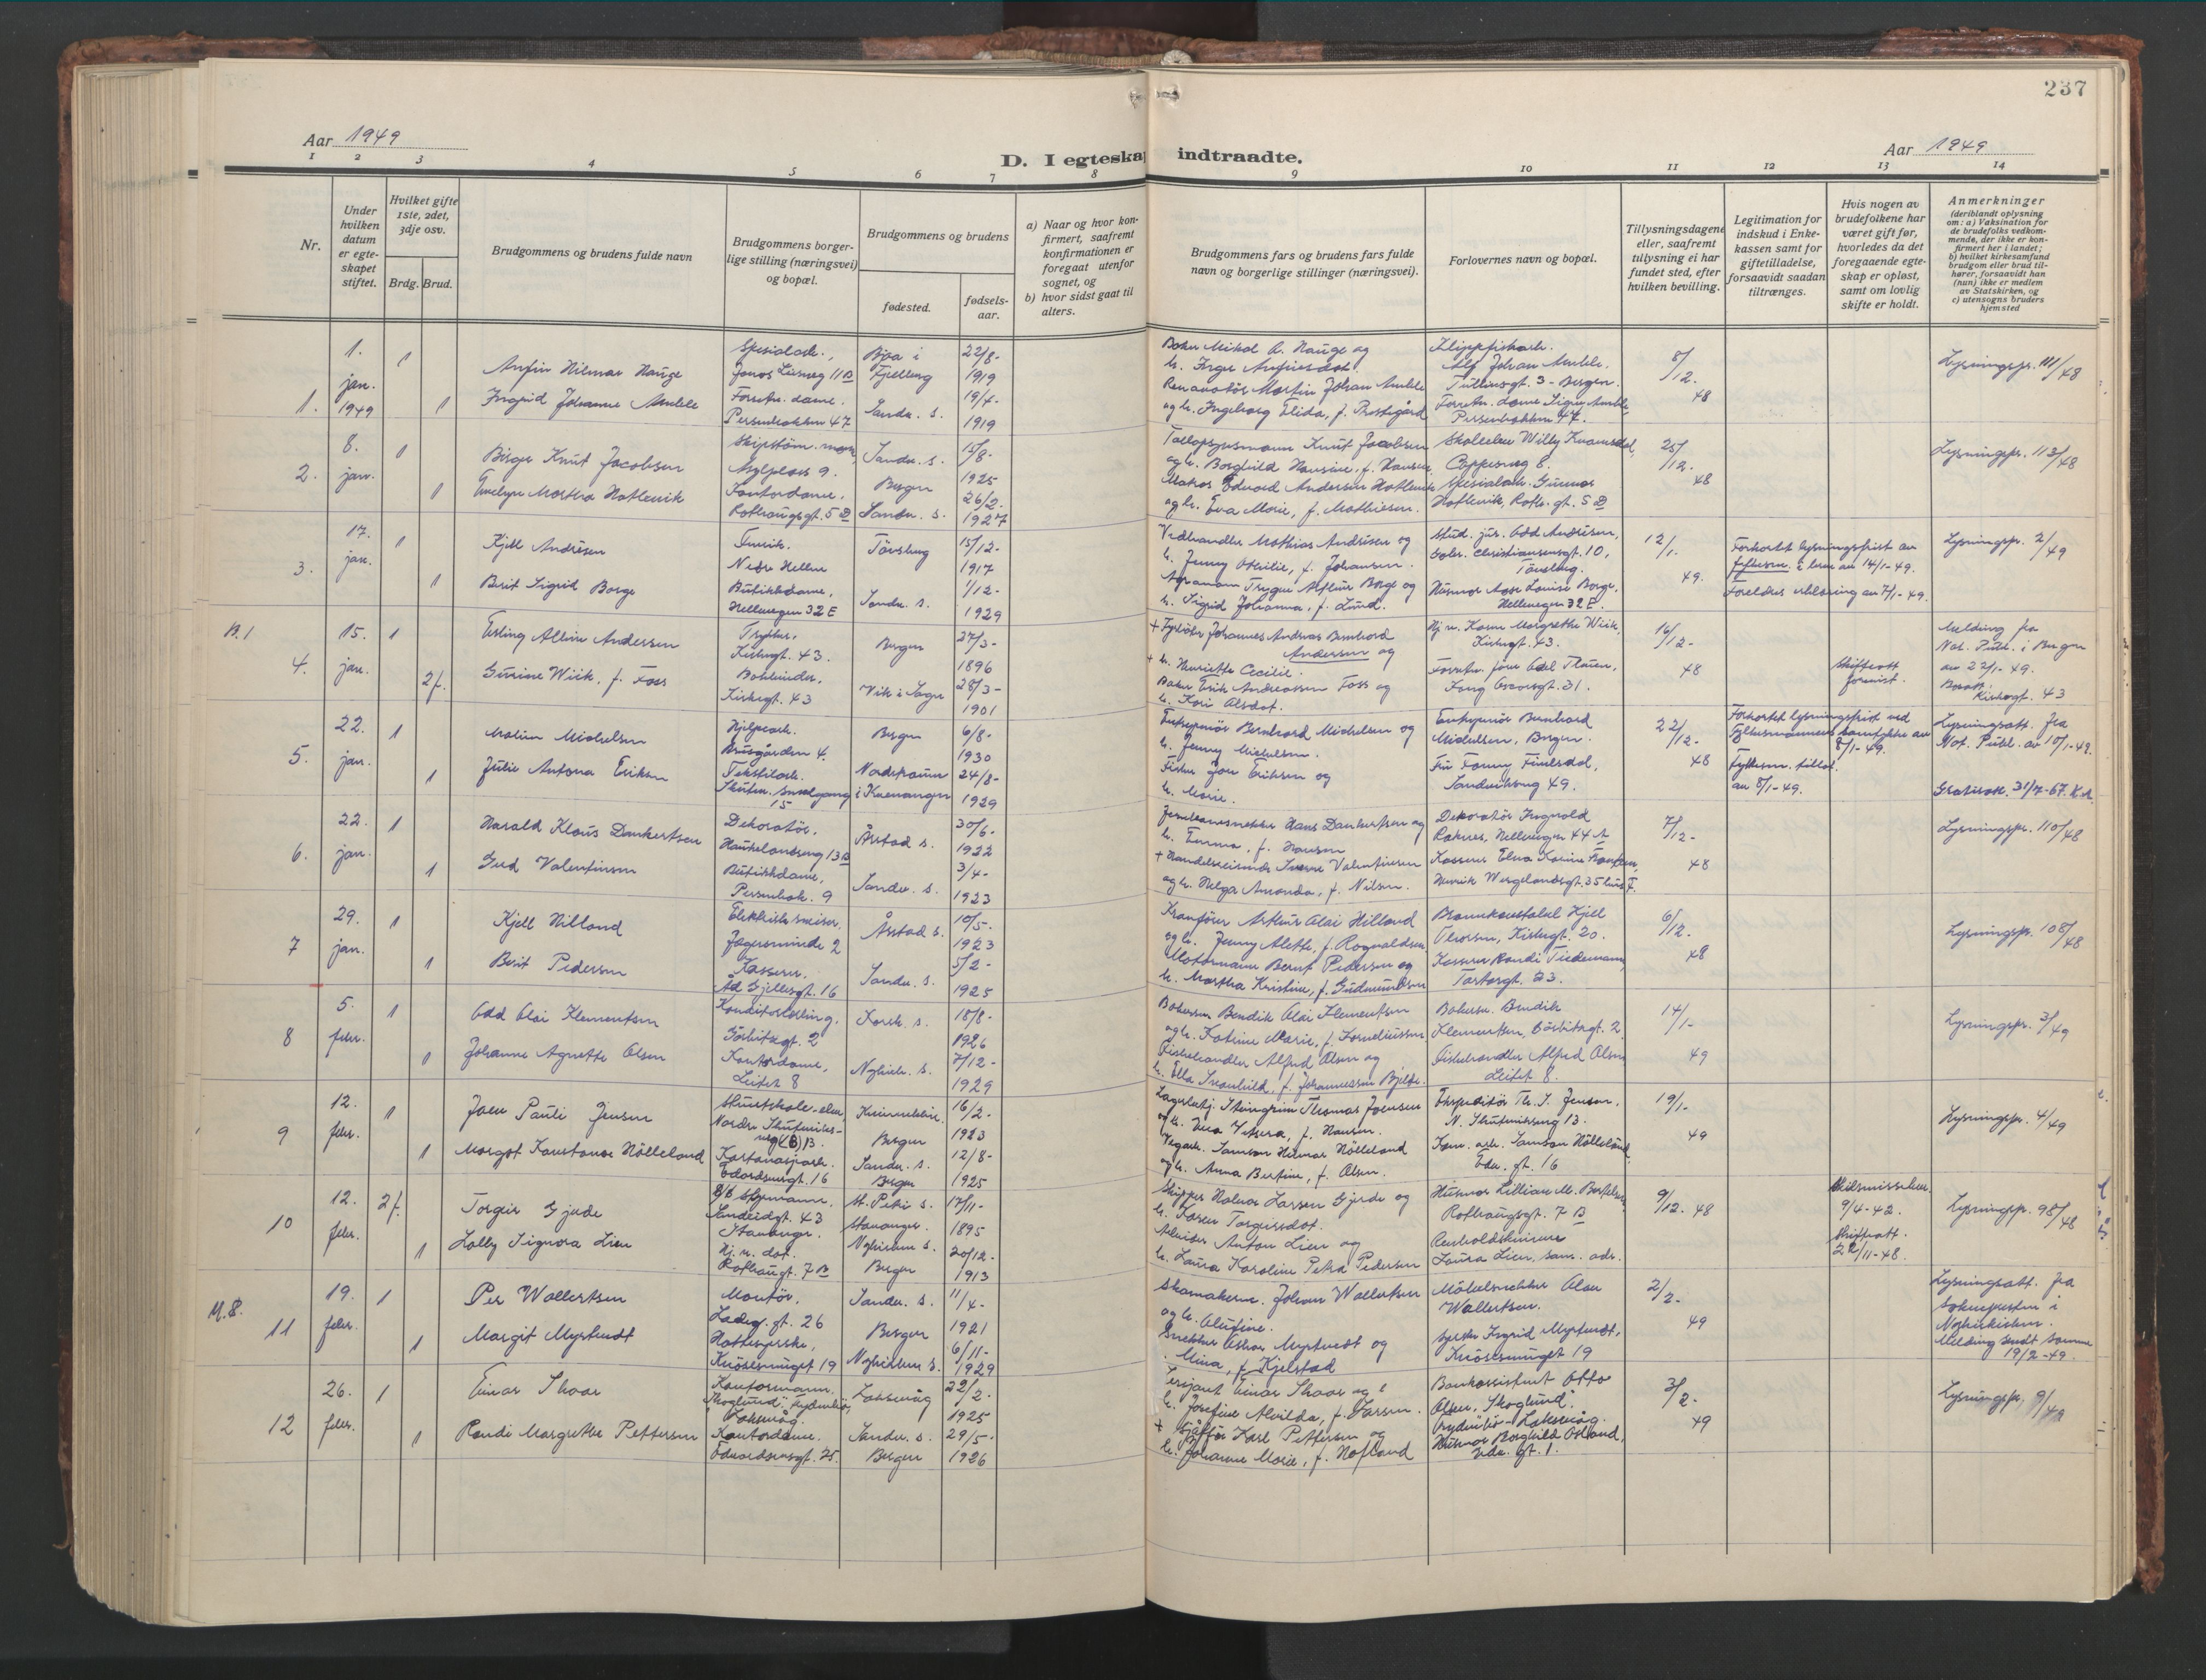 237
Aar 1949
D. I egteskap indtraadte.
Aar 1949
1 2 3 4 5 6 7 8 9 10 11 12 13 14
Nr.
Under hvilken datum er egteskapet stiftet.
Hvilket gifte 1ste, 2det, 3dje osv.
Brdg. Brud.
Brudgommens og brudens fulde navn
Brudgommens borgerlige stilling (næringsvei) og bopæl.
Brudgommens og brudens
fødested.
fødselsaar.
a) Naar og hvor konfirmert, saafremt konfirmationen er foregaat utenfor sognet, og
b) hvor sidst gaat til alters.
Brudgommens fars og brudens fars fulde navn og borgerlige stillinger (næringsvei).
Forlovernes navn og bopæl.
Tillysningsdagene eller, saafremt tillysning ei har fundet sted, efter hvilken bevilling.
Legitimation for indskud i Enkekassen samt for giftetilladelse, forsaavidt saadan tiltrænges.
Hvis nogen av brudefolkene har været gift før, hvorledes da det foregaaende egteskap er opløst, samt om lovlig skifte er holdt.
Anmerkninger
(deriblandt oplysning om: a) Vaksination for de brudefolks vedkommende, der ikke er konfirmert her i landet; b) hvilket kirkesamfund brudgom eller brud tilhører, forsaavidt han (hun) ikke er medlem av Statskirken, og c) utensogns bruders hjemsted
1. 1. jan. 1949
1 Anfin Hilmar Hauge
Spesialarb.,
Jonas Liesveg 11 B
22/8- 1919
1 Ingrid Johanne Amble
Forretn. dame.
Persenbakken 47
Sandv. s.
19/4- 1919
Baker Mikal A. Hauge og
h. Inga Anfinsdot.
Renovatør Martin Johan Amble
og h. Ingeborg Elida, f. Prestegård
Klippfiskarb.
Alf Johan Amble,
Tullinsgt. 3 - Bergen.
Forretn. dame Signe Amble,
Persenbakken 47.
8/12. 48
Lysningspr. 111/48
2. 8. jan.
1 Birger Knut Jacobsen
Asylplass 9.
Sandv. s.
15/8- 1925
1 Evelyn Martha Hatlevik
Kontordame,
Rothaugsgt. 5 D
Bergen
Sandv. s.
26/2. 1927
Tolloppsynsmann Knut Jacobsen
og h. Borghild Hansine, f. Hansen.
Matros Edvard Andersen Hatlevik
og h. Eva Marie, f. Mathiesen.
Spesialarb. Gunnar
Hatlevik, Roth. gt. 5 D
25/12. 48
Lysningspr. 113/48
3. 17. jan.
1 Kjell Andrésen
Nedre Hellen
Tønsberg
15/12- 1917
1 Berit Sigrid Borge
Butikkdame,
Hellevegen 32 E
Sandv. s.
1/12- 1929
Vedhandler Mathias Andrésen og
h. Jenny Otthilie, f. Johansen.
Agronom Trygve Alfeur Borge og
h. Sigrid Johanna, f. Lund.
Stud. jur. Odd Andrésen,
Tønsberg.
Husmor Aase Louise Borge,
Hellevegen 32 E.
12/1. 49.
Forkortet lysningsfrist av
fylkesm. i brev av 14/1-49.
Foreldres erklæring av 7/1-49.
Lysningspr. 2/49
B. 1
4. 15. jan.
1 Erling Albin Andersen
Trykker,
Kirkegt. 43.
Bergen
27/3- 1896
2 f. Gurine Wiik, f. Foss
Bokbinder,
Kirkegt. 43
Vik i Sogn
28/3- 1901
+ Fyrbøter Johannes Andreas Bernhard
Andersen og
+ h. Henriette Cecilie.
Baker Erik Andreassen Foss og
h. Kari Olsdot.
Hj. v. Karen Margrethe Wiik,
Kirkegt. 43.
Kong Oscarsgt. 31.
16/12- 48
Skifteatt
forevist.
Melding fra
Not. Publ. i Bergen
av 22/1-49.
Kirkegt. 43
5. 22. jan.
1 Martin Michelsen
Hjelpearb.
Krusgården 4.
Bergen
6/8- 1930
1 Julie Antona Eriksen
Tekstilarb.
Skuten. smalgang
15
Nordstraumen
i Kvenangen
24/8- 1929
Entreprenør Bernhard Michelsen og
h. Jenny Michelsen.
Fisker Jon Eriksen og
h. Marie.
Entreprenør Bernhard
Michelsen, Bergen.
Fru Fanny Finlsdal,
Sandviksveg 49.
22/12- 48
Forkortet lysningsfrist ved
Fylkesmannens samtykke av
8/1-49.
Fylkesm. tillat.
av 8/1-49.
Lysningsatt. fra
Not. Publ. av 10/1-49.
Gratisatt. 31/7-67. K.A.
6. 22. jan.
1 Harald Klaus Dankertsen
Dekoratør,
Haukelandsveg 13 B
Årstad s.
30/6- 1922
1 Gud Valentinsen
Butikkdame,
Persenbak. 9
Sandv. s.
3/4- 1923
Jernbanesnekker Hans Dankertsen og
h. Emma, f. Hansen
+ Handelsreisende Sverre Valentinsen
og h. Helga Amanda, f. Nilsen.
Dekoratør Ingvald
Raknes, Hellevegen 44 A
Kasserer Elna Karine Frantzen,
Henrik Wergelandsgt. 35 hus F.
7/12- 48
Lysningspr. 110/48
7 29. jan.
1 Kjell Hilland
Elektrisk sveiser,
Jægersminde 2
Årstad s.
10/5- 1923
1 Berit Pedersen
Kasserer,
Ad. Gjellesgt. 16
Sandv. s.
5/2- 1925
Kranfører Arthur Olai Hilland
og h. Jenny Alette, f. Rognaldsen.
Motormann Bernt Pedersen og
h. Martha Kristine, f. Gudmundsen
Brannkonstabel Kjell
Thorsen, Kirkegt. 20.
Kasserer Randi Tiedemann,
Tartargt. 23.
6/12. 48
Lysningspr. 108/48
8 5. febr.
1 Odd Olai Klementsen
Konditorlærling,
Görbitzgt. 2
Korsk. s.
18/8- 1926
1 Johanne Agnethe Olsen
Kontordame,
Leitet 8
Nykirk. s.
7/12- 1929
Bakersv. Bendik Olai Klementsen
og h. Katrine Marie, f. Korneliussen
Fiskehandler Alfred Olsen og
h. Ella Svanhild, f. Johannessen Bjelke.
Bakersv. Bendik
Klementsen, Görbitzgt. 2
Fiskehandler Alfred Olsen
Leitet 8.
14/1- 49
Lysningspr. 3/49
9 12. febr.
1 Joen Pauli Jensen
Kunstskole-elev
Nordre Skuteviks-
veg (B) 13.
16/2- 1923
1 Margot Konstanse Hølleland
Kartonasjearb.
Edvardsensgt. 16
Sandv. s.
Bergen
12/8- 1925
Lagerbetj. Steingrim Thomas Joensen
og h. Vera Vetura, f. Hansen.
Vegarb. Samson Hilmar Hølleland
og h. Anna Bertine, f. Olsen.
Ekspeditør Th. S. Jensen,
N. Skuteviksveg 13.
Kom. arb. Samson Hølleland,
Edv. gt. 16
19/1- 49
Lysningspr. 4/49
10 12. febr.
2 f. Torgeir Gjerde
Sandeidgt. 43
Stavanger.
St. Petri s.
Stavanger.
17/11- 1895
1 Lolly Signora Lien
Hj. v. dat.
Rothaugt. 7 B
Nykirkens s.
Bergen
20/12- 1913
Skipper Halvor Larsen Gjerde og
h. Karen Torgersdot.
Arbeider Anton Lien og
h. Laura Karoline Petra Pedersen
Husmor Lillian M. Bertelsen,
Rothaugsgt. 7 B
Renholdskvinne
Laura Lien, sam. adr.
9/12. 48
Skilsmissebev.
9/4-42.
Skifteatt.
22/11-48.
Lysningspr. 98/48
M. 8.
11 19. febr.
1 Per Wallertsen
Montør,
Ladeg. gt. 26
Sandv. s.
Bergen
11/4- 1921
1 Margit Myrtvedt
Hattesyerske,
Knøsesmuget 19
Nykirkens s.
6/11- 1929
Skomakerm. Johan Wallertsen
og h. Alufine.
Snekker Oskar Myrtvedt og
Mina, f. Kjelstad
Møbelsnekker Olav
Wallertsen.
Syerske Ingrid Myrtvedt,
Knøsesmuget 19
2/2- 49
Lysningsatt. fra
Sokneprest i
Nykirken.
Melding sendt samme
19/2-49.
12 26. febr.
1 Einar Skaar
Kontormann.
"Skoglund", Gyldenbø,
Laksevåg.
Laksevåg
22/2. 1925
1 Randi Margrethe Pettersen
Kontordame.
Edvardsensgt. 25.
Sandv. s.
Bergen
29/5- 1926
Sersjant Einar Skaar og
h. Josefine Alvilda, f. Larsen.
+ Sjåfør Karl Pettersen og
h. Johanne Marie, f. Hofland
Bankassistent Otto
Olsen, "Skoglund",
Gyldenbø - Laksevåg.
Husmor Borghild Osland,
Edv. gt. 1.
3/2- 49
Lysningspr. 9/49